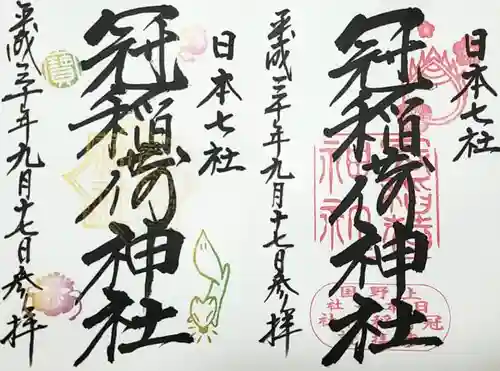 日本七社
冠稲荷神社
平成三十年九月十七日参拝
寶
日本七社
冠稲荷神社
平成三十年九月十七日参拝